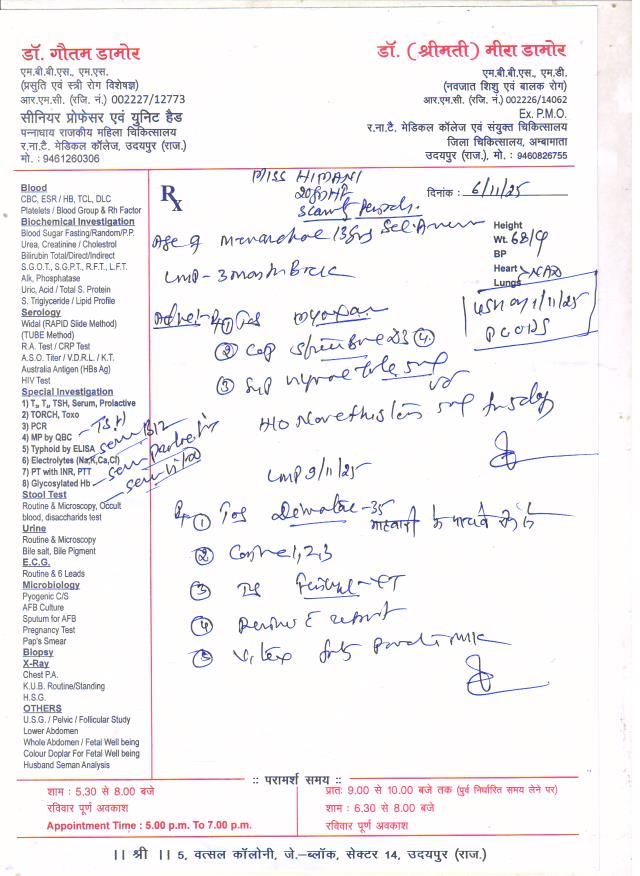 डॉ. गौतम डामोर
एम.बी.बी.एस., एम.एस.
(प्रसुति एवं स्त्री रोग विशेषज्ञ)
आर.एम.सी. (रजि. नं.) 002227/12773
सीनियर प्रोफेसर एवं युनिट हैड
पन्नाधाय राजकीय महिला चिकित्सालय
र.ना.टै. मेडिकल कॉलेज, उदयपुर (राज.)
मो. : 9461260306
डॉ. (श्रीमती) मीरा डामोर
एम.बी.बी.एस., एम.डी.
(नवजात शिशु एवं बालक रोग)
आर.एम.सी. (रजि. नं.) 002226/14062
Ex. P.M.O.
र.ना.टै. मेडिकल कॉलेज एवं संयुक्त चिकित्सालय
जिला चिकित्सालय, अम्बामाता
उदयपुर (राज.), मो. : 9460826755
Blood
CBC, ESR / HB, TCL, DLC
Platelets / Blood Group & Rh Factor
Biochemical Investigation
Blood Sugar Fasting/Random/P.P.
Urea, Creatinine / Cholestrol
Bilirubin Total/Direct/Indirect
S.G.O.T., S.G.P.T., R.F.T., L.F.T.
Alk, Phosphatase
Uric, Acid / Total S. Protein
S. Triglyceride / Lipid Profile
Serology
Widal (RAPID Slide Method)
(TUBE Method)
R.A. Test / CRP Test
A.S.O. Titer / V.D.R.L. / K.T.
Australia Antigen (HBs Ag)
HIV Test
Special Investigation
1) T₃, T₄, TSH, Serum, Prolactive
2) TORCH, Toxo
3) PCR
4) MP by QBC
5) Typhoid by ELISA
6) Electrolytes (Na,K,Ca,Cl)
7) PT with INR, PTT
8) Glycosylated Hb
T.S.H
B12
Stool Test
Routine & Microscopy, Occult
blood, disaccharids test
Urine
Routine & Microscopy
Bile salt, Bile Pigment
E.C.G.
Routine & 6 Leads
Microbiology
Pyogenic C/S
AFB Culture
Sputum for AFB
Pregnancy Test
Pap's Smear
Biopsy
X-Ray
Chest P.A.
K.U.B. Routine/Standing
H.S.G.
OTHERS
U.S.G. / Pelvic / Follicular Study
Lower Abdomen
Whole Abdomen / Fetal Well being
Colour Doplar For Fetal Well being
Husband Seman Analysis
Rx
MISS HIMANI
दिनांक : 6/11/25
Scanty Periods.
Age of menarchae 13
Height
Wt. 68
BP
Heart NAD
Lungs
LMP - 3 month Back
USG 1/11/25
PCODS
① Tab
② Cap D3 ④
③ Syp
H/O
LMP 9/11/25
① Tab -35
② 1,2,3
③
④ Review report
⑤
:: परामर्श समय ::
शाम : 5.30 से 8.00 बजे
रविवार पूर्ण अवकाश
Appointment Time : 5.00 p.m. To 7.00 p.m.
प्रातः 9.00 से 10.00 बजे तक (पुर्व निर्धारित समय लेने पर)
शाम : 6.30 से 8.00 बजे
रविवार पूर्ण अवकाश
|| श्री || 5, वत्सल कॉलोनी, जे.–ब्लॉक, सेक्टर 14, उदयपुर (राज.)